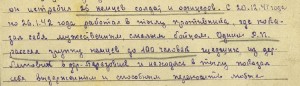 он истребил 25 немцев солдат и офицеров. С 20.12.41 года
по 26.1.42 года работал в тылу противника, где пока-
зал себя мужественным смелым бойцом. Один с Р.П.
рассеял группу немцев до 100 человек идущих из дер.
в дер. и находясь в тылу показал
себя выдержанным и способным переносить любые